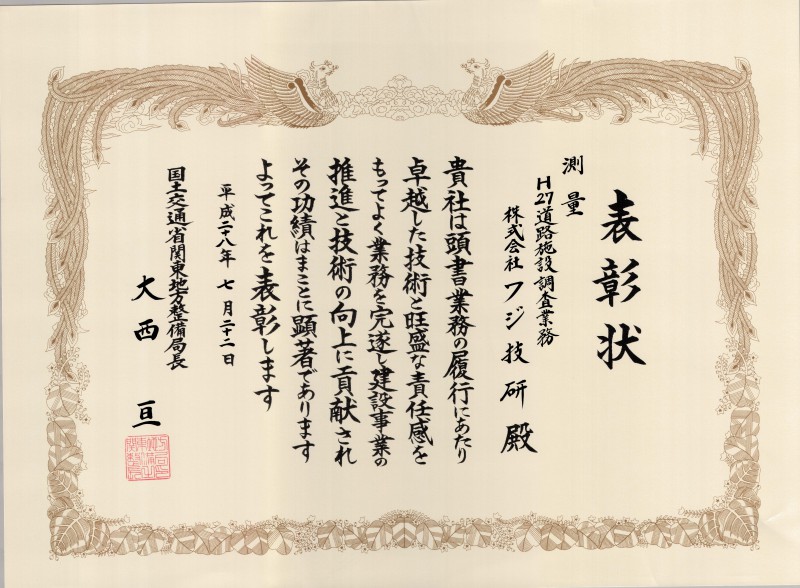 表彰状
測量
H27道路施設調査業務
株式会社フジ技研殿
貴社は頭書業務の履行にあたり
卓越した技術と旺盛な責任感を
もってよく業務を完遂し建設事業の
推進と技術の向上に貢献され
その功績はまことに顕著であります
よってこれを表彰します
平成二十八年七月二十二日
国土交通省関東地方整備局長
大西亘